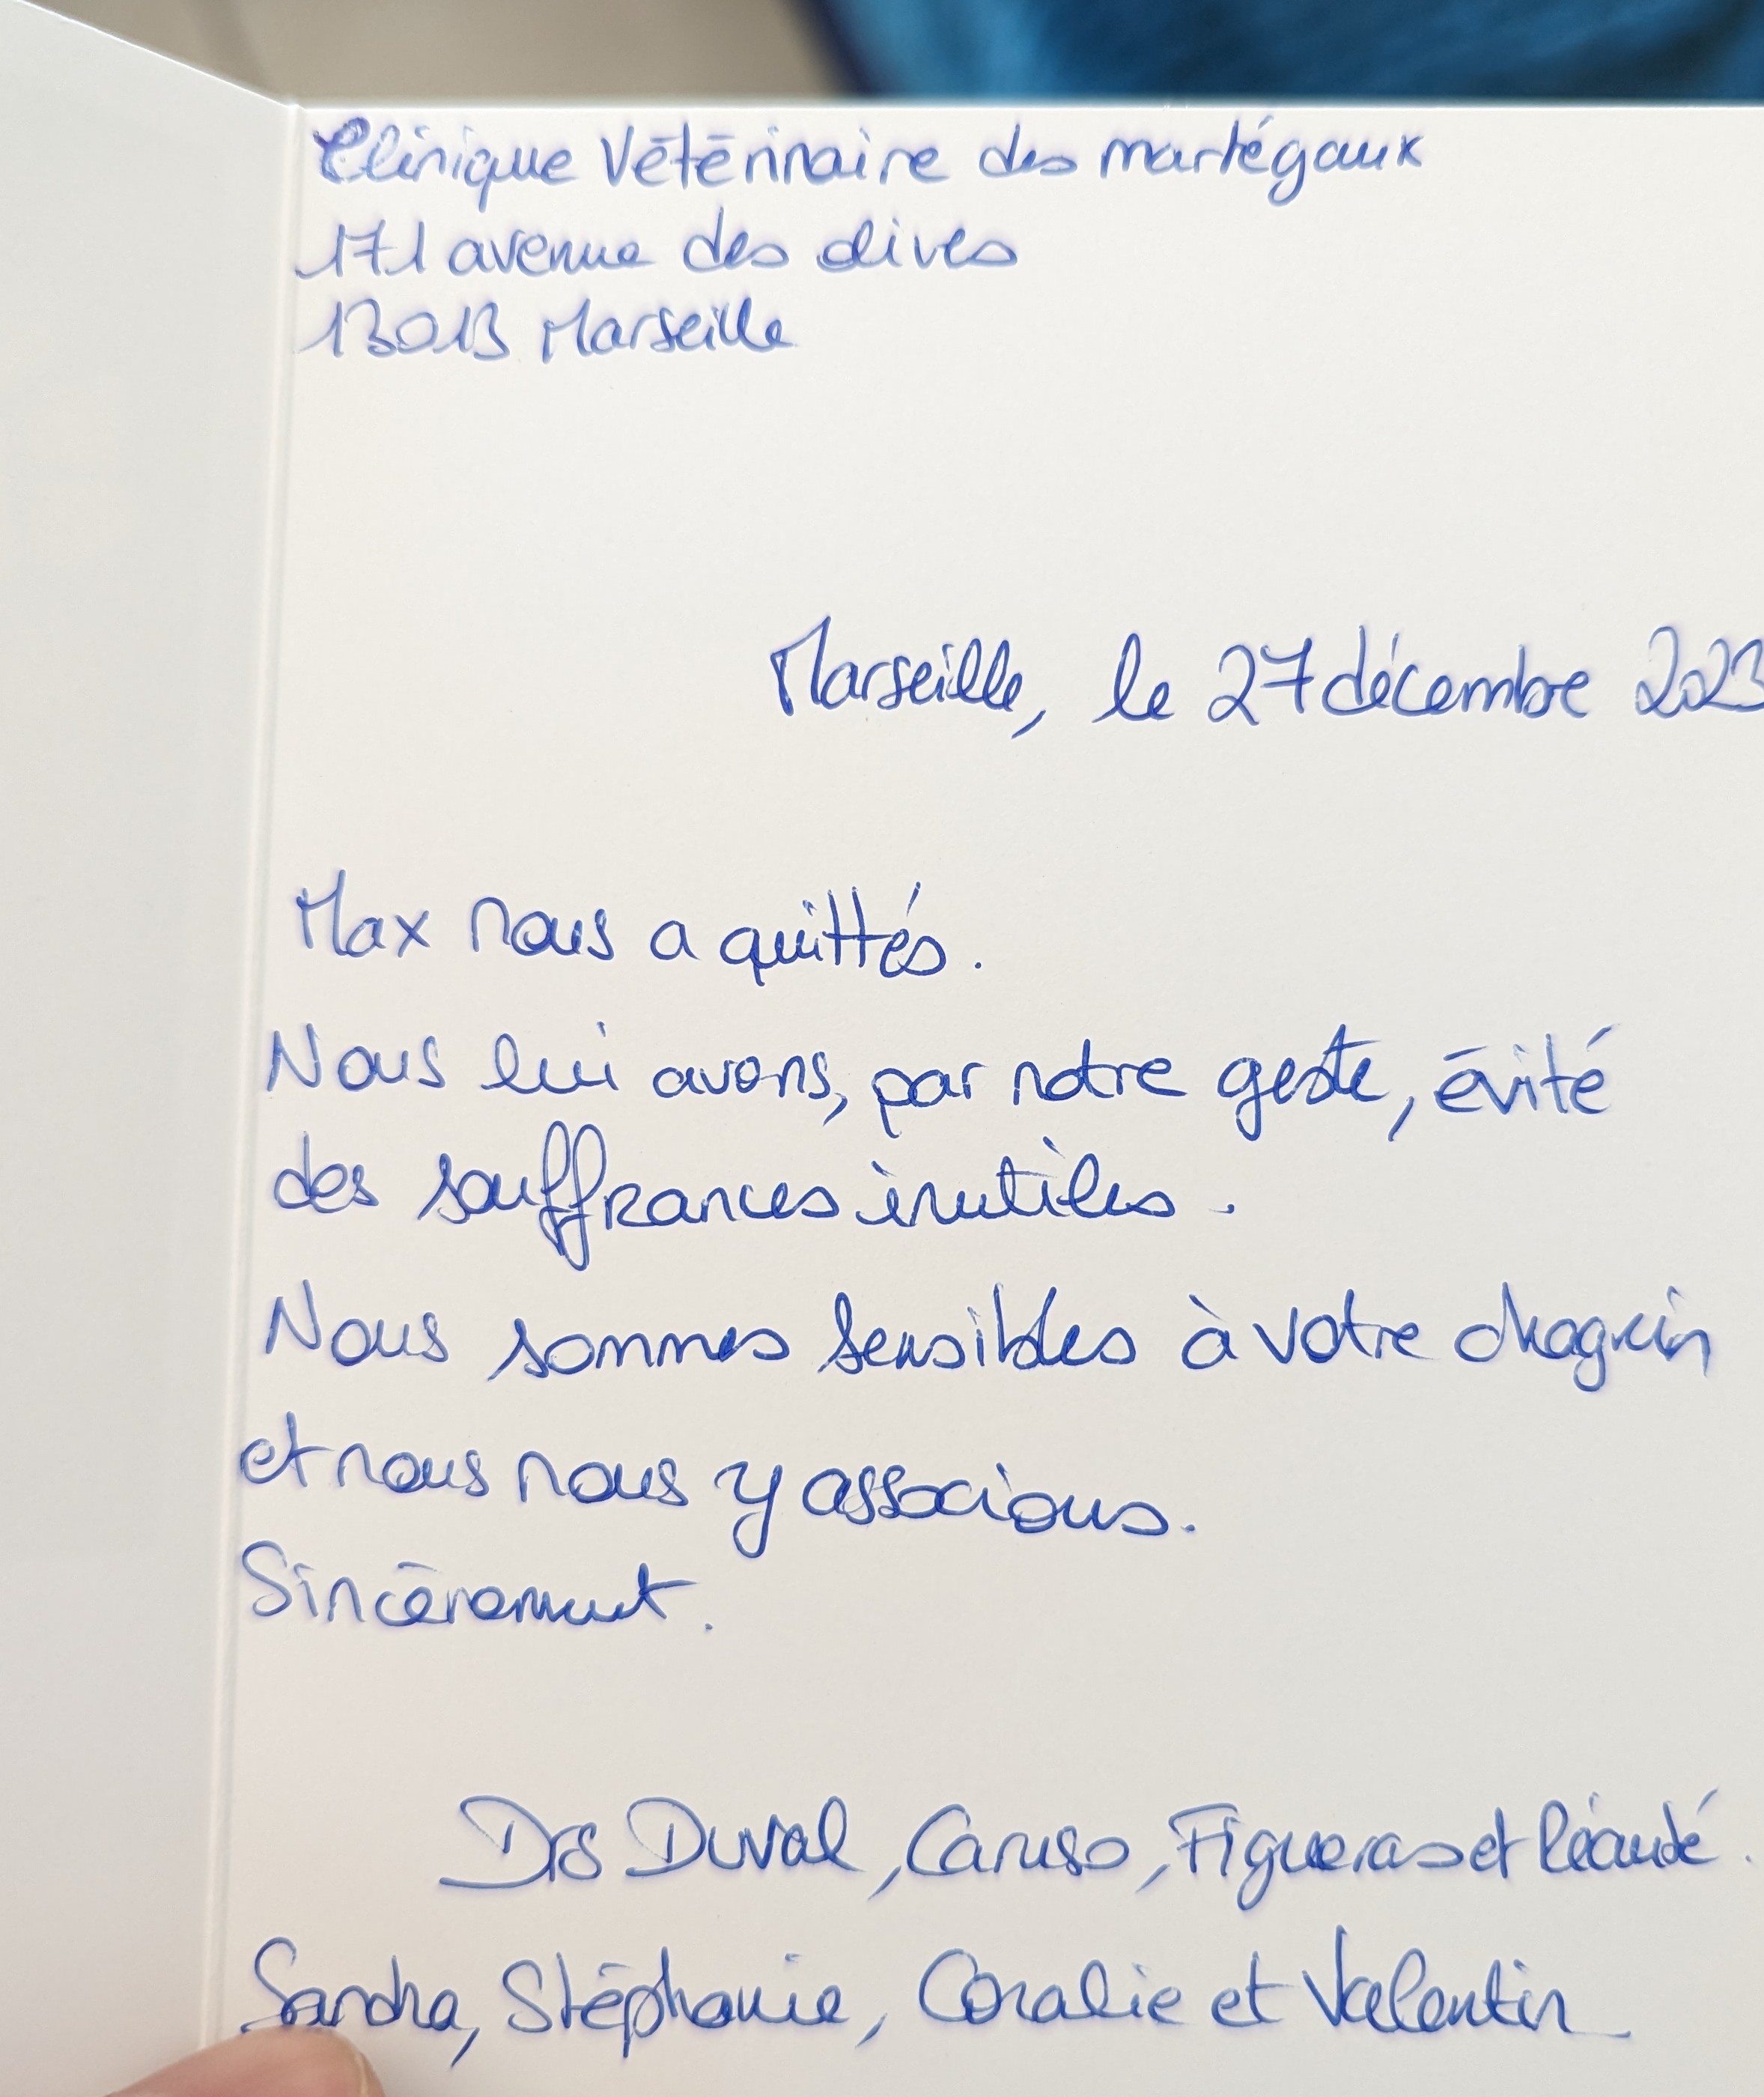 Clinique Vétérinaire des martégaux
171 avenue des olives
13013 Marseille
Marseille, le 27 décembre 2023
Max nous a quittés.
Nous lui avons, par notre geste, évité
des souffrances inutiles.
Nous sommes sensibles à votre chagrin
et nous nous y associons.
Sincèrement.
Drs Duval, Caruso, Figueras et
Sandra, Stéphanie, Coralie et Valentin